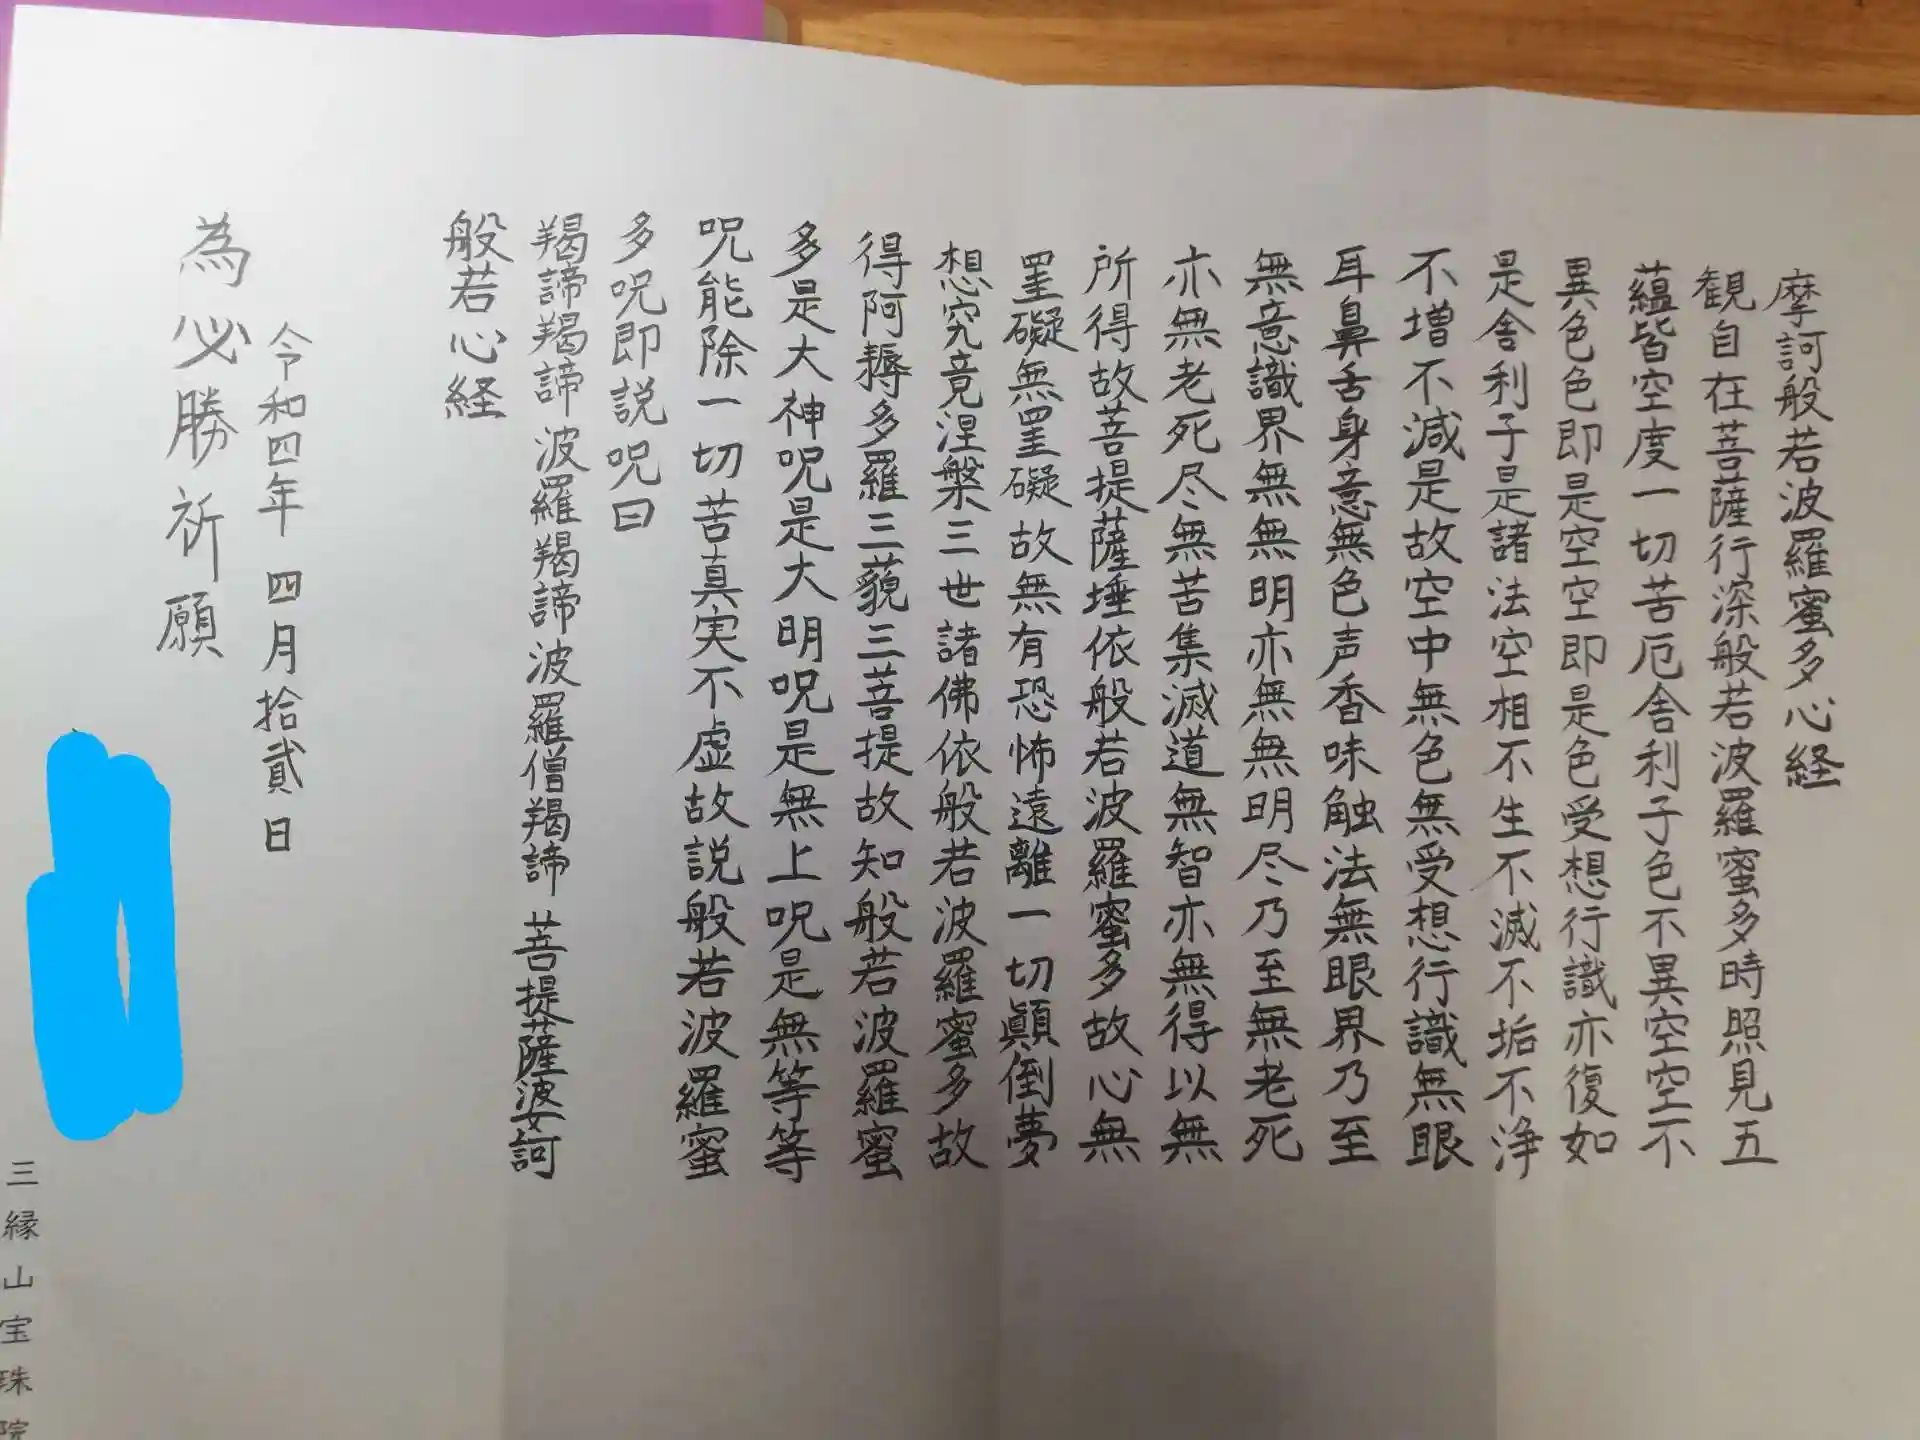 摩訶般若波羅蜜多心経
観自在菩薩行深般若波羅蜜多時照見五
蘊皆空度一切苦厄舎利子色不異空空不
異色色即是空空即是色受想行識亦復如
是舎利子是諸法空相不生不滅不垢不浄
不増不減是故空中無色無受想行識無眼
耳鼻舌身意無色声香味触法無眼界乃至
無意識界無無明亦無無明尽乃至無老死
亦無老死尽無苦集滅道無智亦無得以無
所得故菩提薩埵依般若波羅蜜多故心無
罣礙無罣礙故無有恐怖遠離一切顛倒夢
想究竟涅槃三世諸佛依般若波羅蜜多故
得阿耨多羅三藐三菩提故知般若波羅蜜
多是大神呪是大明呪是無上呪是無等等
呪能除一切苦真実不虚故説般若波羅蜜
多呪即説呪曰
羯諦羯諦波羅羯諦波羅僧羯諦菩提薩婆訶
般若心経
令和四年四月拾貳日
為必勝祈願
三縁山宝珠院